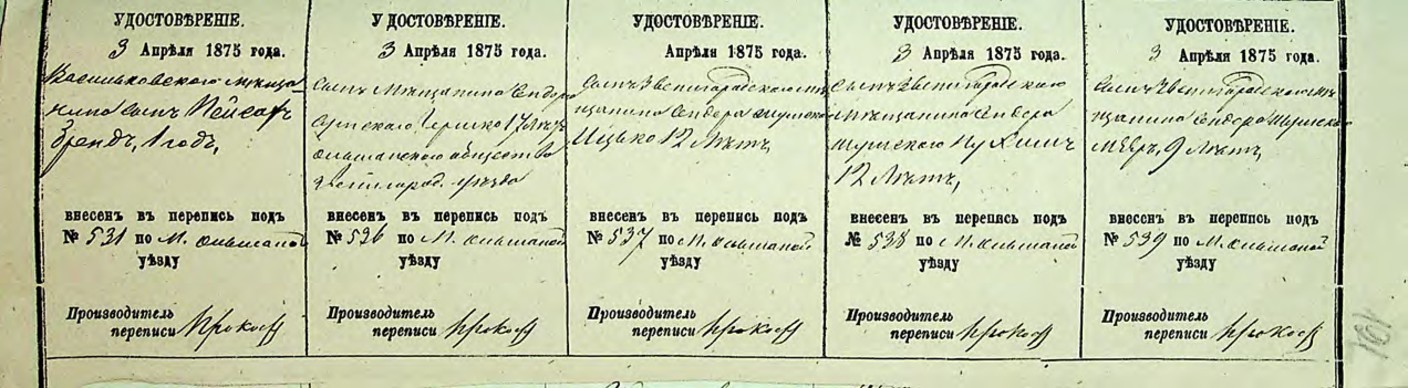 УДОСТОВѢРЕНІЕ.
3 Апрѣля 1875 года.
Васильковского мѣща-
нина сынъ Пейсах
Бренд, 1 годъ,
внесенъ въ перепись подъ
№ 531 по М. Ольшаной
уѣзду
Производитель
переписи
УДОСТОВѢРЕНІЕ.
3 Апрѣля 1875 года.
Сынъ Мѣщанина Сендера
Гершко 17 Лѣтъ
Ольшанского общества
Звенигород. уѣзда
внесенъ въ перепись подъ
№ 536 по М. Ольшаной
уѣзду
Производитель
переписи
УДОСТОВѢРЕНІЕ.
Апрѣля 1875 года.
Сынъ Звенигородского мѣ-
щанина Сендера
Ицько 12 Лѣтъ,
внесенъ въ перепись подъ
№ 537 по М. Ольшаной
уѣзду
Производитель
переписи
УДОСТОВѢРЕНІЕ.
3 Апрѣля 1875 года.
Сынъ Звенигородского
Мѣщанина Сендера
12 Лѣтъ,
внесенъ въ перепись подъ
№ 538 по М. Ольшаной
уѣзду
Производитель
переписи
УДОСТОВѢРЕНІЕ.
3 Апрѣля 1875 года.
Сынъ Звенигородского мѣ-
щанина Сендера
9 Лѣтъ,
внесенъ въ перепись подъ
№ 539 по М. Ольшаной
уѣзду
Производитель
переписи